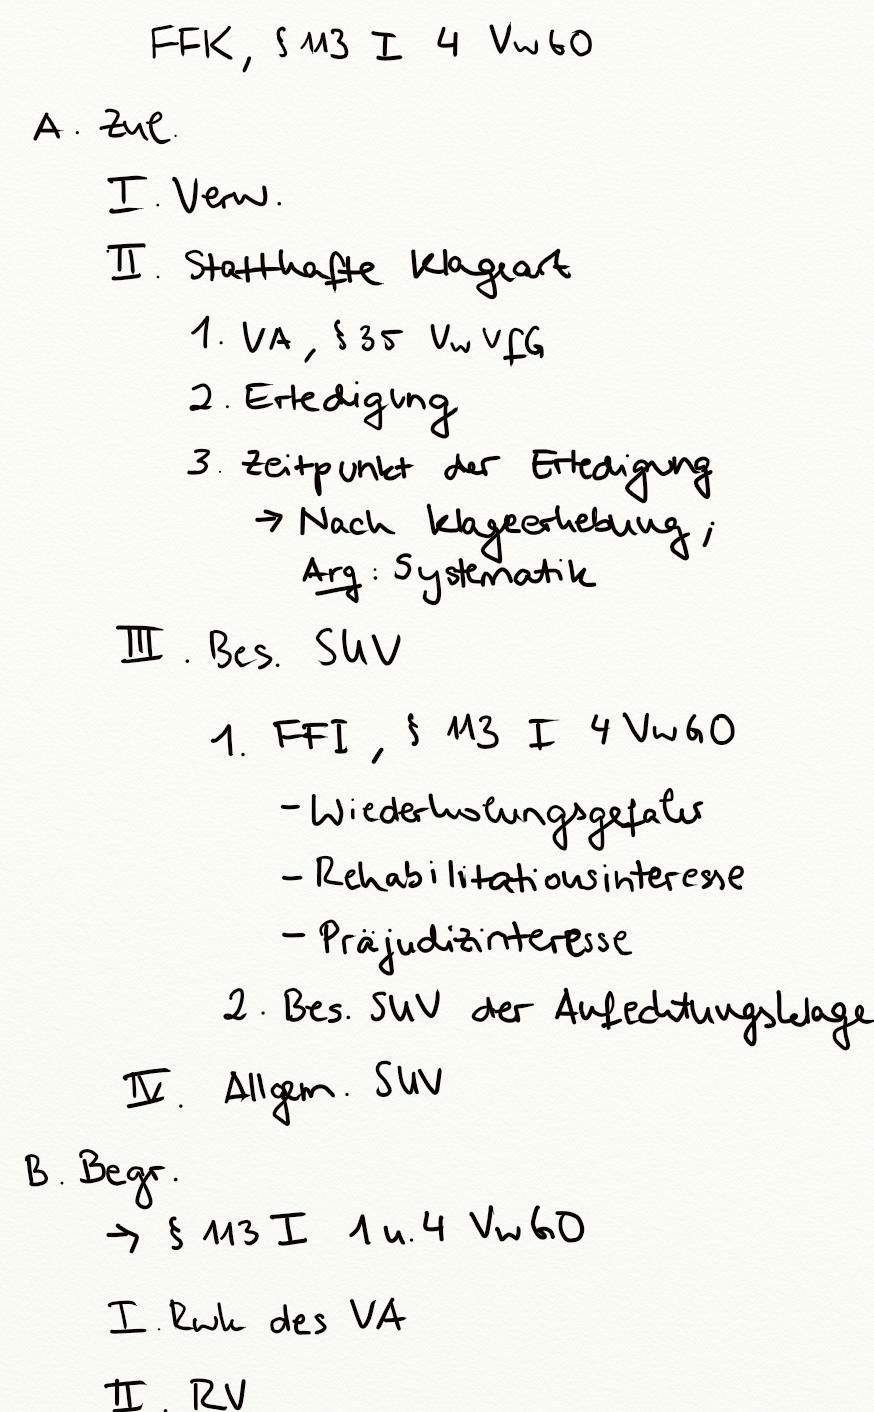 FFK, § 113 I 4 VwGO
A. Zul.
I. Verw.
II. Statthafte Klageart
1. VA, § 35 VwVfG
2. Erledigung
3. Zeitpunkt der Erledigung
→ Nach Klageerhebung;
Arg: Systematik
III. Bes. SUV
1. FFI, § 113 I 4 VwGO
- Wiederholungsgefahr
- Rehabilitationsinteresse
- Präjudizinteresse
2. Bes. SUV der Anfechtungsklage
IV. Allgem. SUV
B. Begr.
→ § 113 I 1 u. 4 VwGO
I. Rwk des VA
II. RV